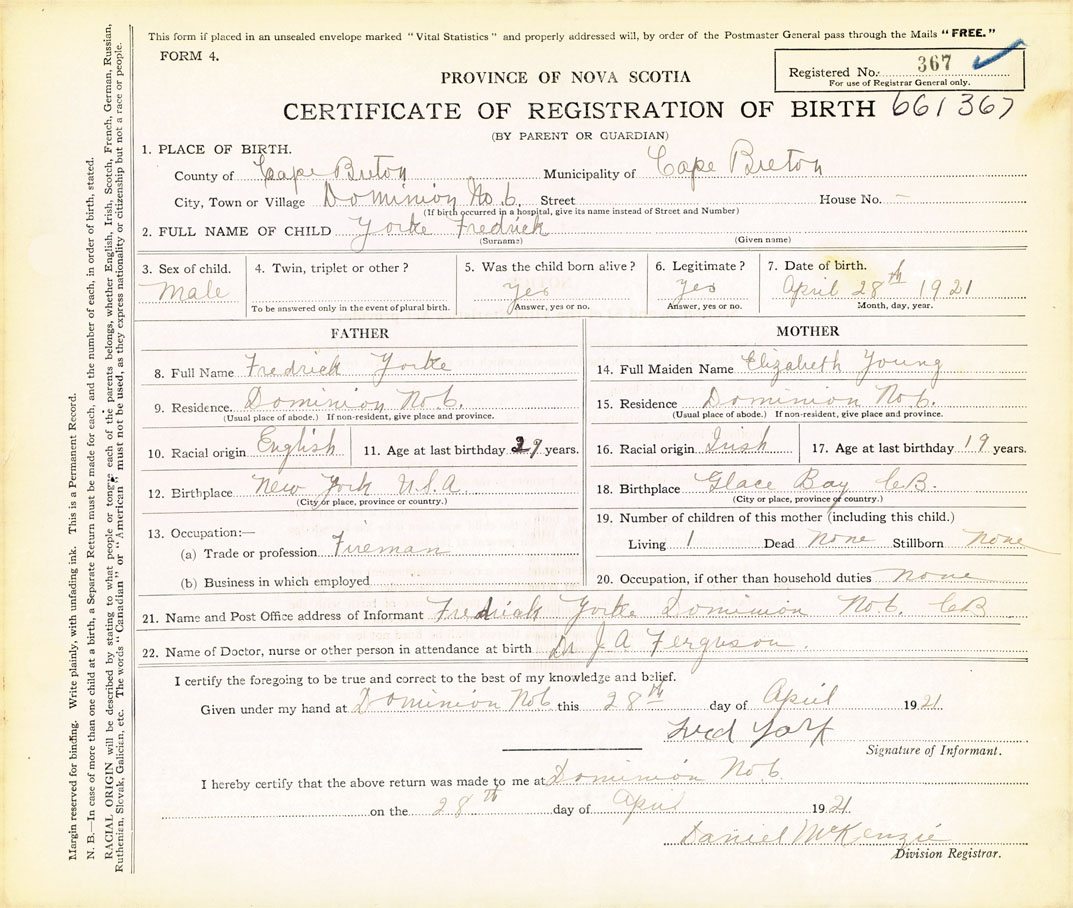 This form if placed in an unsealed envelope marked "Vital Statistics" and properly addressed will, by order of the Postmaster General pass through the Mails "FREE."
FORM 4.
Registered No. 367
For use of Registrar General only.
PROVINCE OF NOVA SCOTIA
CERTIFICATE OF REGISTRATION OF BIRTH 661367
(BY PARENT OR GUARDIAN)
1. PLACE OF BIRTH.
County of Cape Breton Municipality of Cape Breton
City, Town or Village Dominion No. 6. Street House No. —
(If birth occurred in a hospital, give its name instead of Street and Number)
2. FULL NAME OF CHILD Yorke Fredrick
(Surname) (Given name)
3. Sex of child. Male
4. Twin, triplet or other?
To be answered only in the event of plural birth.
5. Was the child born alive? yes
Answer, yes or no.
6. Legitimate? yes
Answer, yes or no.
7. Date of birth. April 28th 1921
Month, day, year.
FATHER
8. Full Name Fredrick Yorke
9. Residence. Dominion No 6.
(Usual place of abode.) If non-resident, give place and province.
10. Racial origin English 11. Age at last birthday 29 years.
12. Birthplace New York U.S.A.
(City or place, province or country.)
13. Occupation:—
(a) Trade or profession Fireman
(b) Business in which employed
MOTHER
14. Full Maiden Name Elizabeth Young
15. Residence Dominion No 6.
(Usual place of abode.) If non-resident, give place and province.
16. Racial origin Irish 17. Age at last birthday 19 years.
18. Birthplace Glace Bay C.B.
(City or place, province or country.)
19. Number of children of this mother (including this child.)
Living 1 Dead None Stillborn None
20. Occupation, if other than household duties none
21. Name and Post Office address of Informant Fredrick Yorke Dominion No 6. CB
22. Name of Doctor, nurse or other person in attendance at birth Dr J. A Ferguson.
I certify the foregoing to be true and correct to the best of my knowledge and belief.
Given under my hand at Dominion No 6 this 28th day of April 1921.
Fred York
Signature of Informant.
I hereby certify that the above return was made to me at Dominion No 6.
on the 28th day of April 1921.
Daniel McKenzie
Division Registrar.
Margin reserved for binding. Write plainly, with unfading ink. This is a Permanent Record.
N. B.—In case of more than one child at a birth, a Separate Return must be made for each, and the number of each, in order of birth, stated.
RACIAL ORIGIN will be described by stating to what people or tongue each of the parents belongs, whether English, Irish, Scotch, French, German, Russian,
Ruthenian, Slovak, Galician, etc. The words "Canadian" or "American" must not be used, as they express nationality or citizenship but not a race or people.